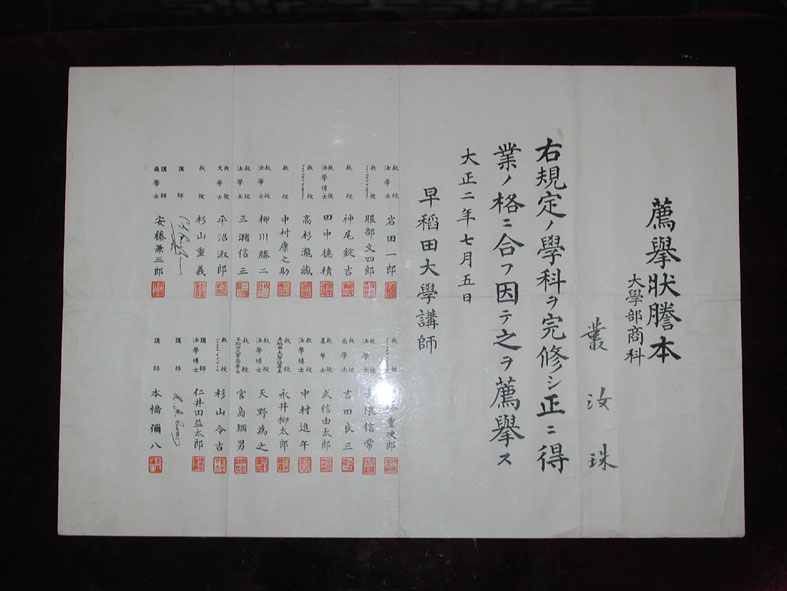 薦擧狀謄本
大學部商科
叢汝珠
右規定ノ學科ヲ完修シ正ニ得
業ノ格ニ合フ因テ之ヲ薦擧ス
大正二年七月五日
早稻田大學講師
教授 法學士 岩田一郎
教授 服部文四郎
教授 神尾錠吉
教授 法學博士 田中穂積
教授 高杉瀧藏
教授 中村康之助
教授 法學士 柳川勝二
教授 法學士 三潴信三
教授 文學士 平沼淑郎
教授 杉山重義
講師
講師 商學士 安藤兼三郎
教授 重次郎
教授 大隈信常
教授 商學士 吉田良三
教授 武信由太郎
教授 法學博士 中村進午
教授 永井柳太郎
教授 法學博士 天野爲之
教授 宮島綱男
教授 杉山令吉
講師 法學博士 仁井田益太郎
講師
講師 本橋彌八